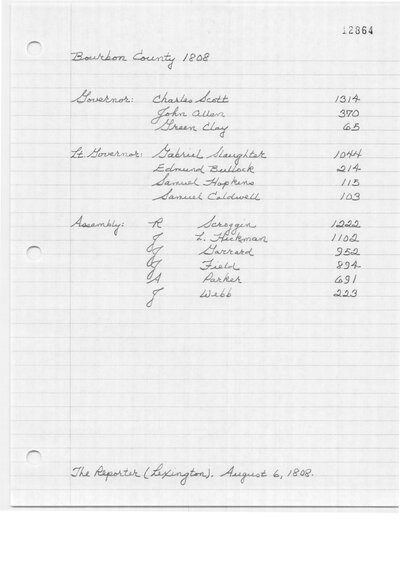 12864
Bourbon County 1808
Governor: Charles Scott 1314
John Allen 370
Green Clay 65
Lt. Governor: Gabriel Slaughter 1044
Edmund Bullock 214
Samuel Hopkins 115
Samuel Caldwell 103
Assembly: R Scroggin 1222
J L. Hickman 1102
J Garrard 952
J Field 894
A Parker 691
J Webb 223
The Reporter (Lexington). August 6, 1808.